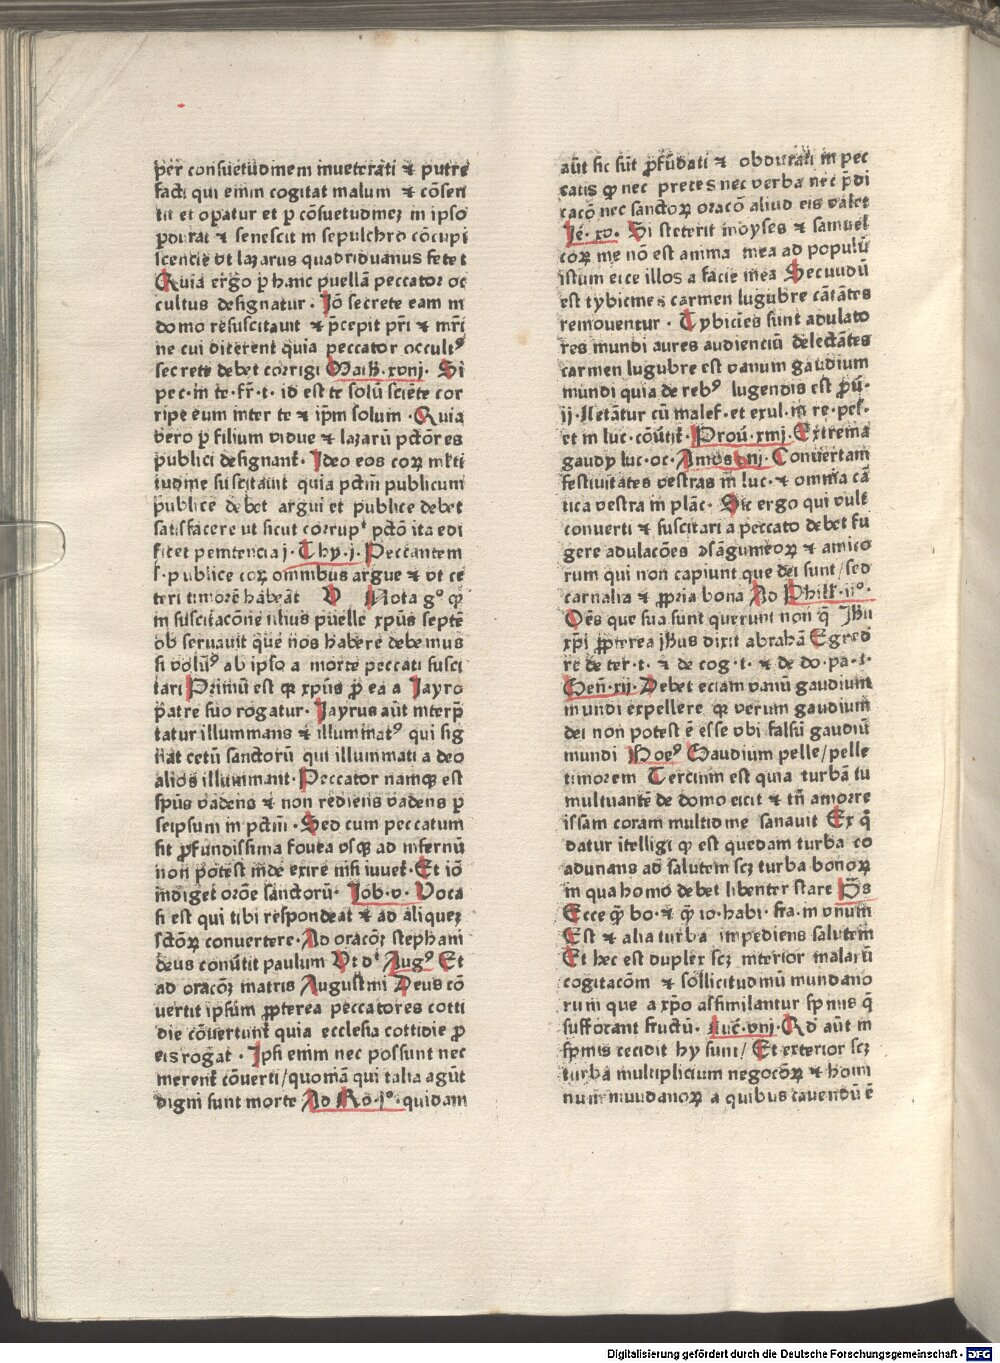 per consuetudinem inueterati ⁊ putre
facti qui enim cogitat malum ⁊ cōsen
tit et opatur et p cōsuetudineꝫ in ipso
pdurat ⁊ senescit in sepulchro cōcupi
scencie vt lazarus quadriduanus fetet
Quia ergo p hanc puellā peccator oc
cultus designatur. Iō secrete eam in
domo resuscitauit ⁊ p̄cepit pr̄i ⁊ mr̄i
ne cui dicerent quia peccator occultꝰ
secrete debet corrigi Math̄.xviij. Si
pec.in te.fr̄.t.id est te solū sciēte cor
ripe eum inter te ⁊ ip̄m solum. Quia
vero p filium vidue ⁊ lazarū pctōres
publici designant᷑. Ideo eos corꝝ ml̄ti
tudine suscitauit quia pctm̄ publicum
publice debet argui et publice debet
satisfacere ut sicut corrupᵗ pctō ita edi
ficet penitencia j. Thy.j. Peccantem
s.publice corꝝ omnibus argue ⁊ vt ce
teri timorē habeāt V Nota gᵒ ꝙ
in suscitacōne illius puelle xpūs septē
ob seruauit que nos habere debemus
si volūꝰ ab ipso a morte peccati susci
tari Primū est qꝛ xpūs p̄ ea a Jayro
patre suo rogatur. Jayrus aūt interp̄
tatur illuminans ⁊ illuminatꝰ qui sig
nat cetū sanctorū qui illuminati a deo
alios illuminant. Peccator namqꝫ est
sp̄us vadens ⁊ non rediens vadens p
seipsum in pctm̄. Sed cum peccatum
sit ꝓfundissima fouea vsqꝫ ad infernū
non potest inde exire nisi iuuet᷑. Et iō
indiget orōne sanctorū. Job.v. Voca
si est qui tibi respondeat ⁊ ad aliqueꝫ
sctōꝝ conuertere. Ad oracōꝫ stephani
deus conūtit paulum Vt dᵗ Augꝰ Et
ad oracōꝫ matris Augustini Deus cō
uertit ipsūm ꝓpterea peccatores cotti
die cōuertunt᷑ quia ecclesia cottidie p
eis rogat. Ipsi enim nec possunt nec
merent᷑ cōuerti/quoniā qui talia agūt
digni sunt morte Ad Rō.jᵒ. quidam
aūt sic sūt ꝓfūdati ⁊ obdurati in pec
catis ꝙ nec preces nec verba nec p̄di
cacō nec sanctoꝝ oracō aliud eis valet
Je.xv. Si steterit moyses ⁊ samuel
corꝝ me nō est anima mea ad populū
istum eice illos a facie mea Secundū
est tybicines carmen lugubre cātātes
remouentur. Tybicies sunt adulato
res mundi aures audienciū delectātes
carmen lugubre est vanum gaudium
mundi quia de rebꝰ lugendis est p̄ū.
ij. Letātur cū malef.et exul.in re.pes.
et in luc.cōūtit᷑. Prou.xiiij. Extrema
gaudij luc.oc. Amos viij. Conuertam
festiuitates vestras in luc.⁊ omnia cā
tica vestra in plāc. Sic ergo qui vult
conuerti ⁊ suscitari a peccato debet fu
gere adulacōes ꝯsāguineoꝝ ⁊ amico
rum qui non capiunt que dei sunt/sed
carnalia ⁊ ꝓpria bona Ad Phill᷑.ijᵒ.
Oēs que sua sunt querunt non q̄ Jhū
xp̄i ꝓpterea jhūs dixit abrahā Egred
re de ter.t. ⁊ de cog.t. ⁊ de do.pa.t.
Gen̄.xij. Debet eciam vanū gaudium
mundi expellere qꝛ verum gaudium
dei non potest ē esse vbi falsū gaudiū
mundi Boeꝰ Gaudium pelle/pelle
timorem Tercium est quia turbā tu
multuantē de domo eicit ⁊ tn̄ amorre
issam coram multidine sanauit Ex q̄
datur itelligi ꝙ est quedam turba co
adunans ad salutem scꝫ turba bonoꝝ
in qua homo debet libenter stare P̄s
Ecce q̄ bo.⁊ q̄ io.habi.fra.in vnum
Est ⁊ alia turba impediens salutem
Et hec est duplex scꝫ interior malarū
cogitacōm ⁊ sollicitudinū mundano
rum que a xp̄o assimilantur spinis q̄
suffocant fructū. Luc̄.viij. Qd aūt in
spinis cecidit hy sunt/ Et exterior scꝫ
turba multiplicium negocōꝝ ⁊ homi
num mundanoꝝ a quibus cauendū ē
Digitalisierung gefördert durch die Deutsche Forschungsgemeinschaft - DFG